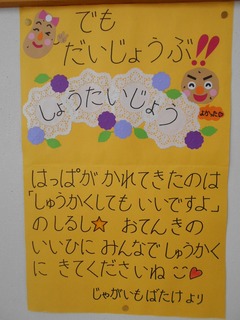 でも
だいじょうぶ!!
しょうたいじょう
よかったね
はっぱが かれてきたのは
「しゅうかくしても いいですよ」
のしるし☆ おてんきの
いいひに みんなでしゅうかく
に きてくださいね
じゃがいもばたけ より